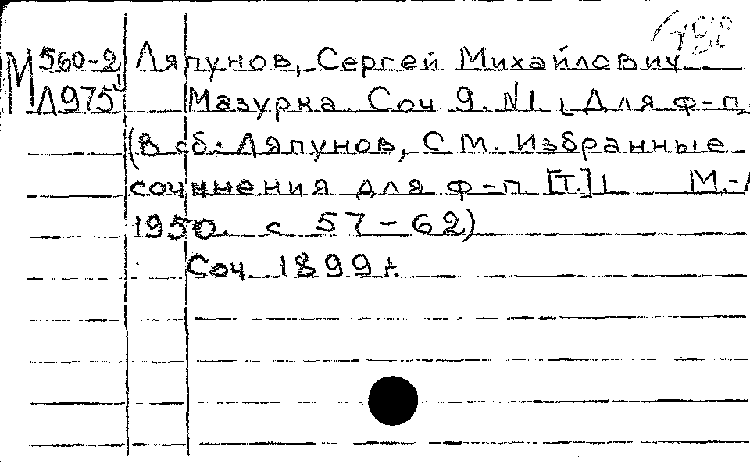 М 560-2 Ляпунов, Сергей Михайлович
Л975 Мазурка. Соч 9. N1. Для ф-п.
(В сб.: Ляпунов, С М. Избранные
сочинения для ф-п [Т.] 1 М.-
1950. с 57-62)
Соч 1899 г.